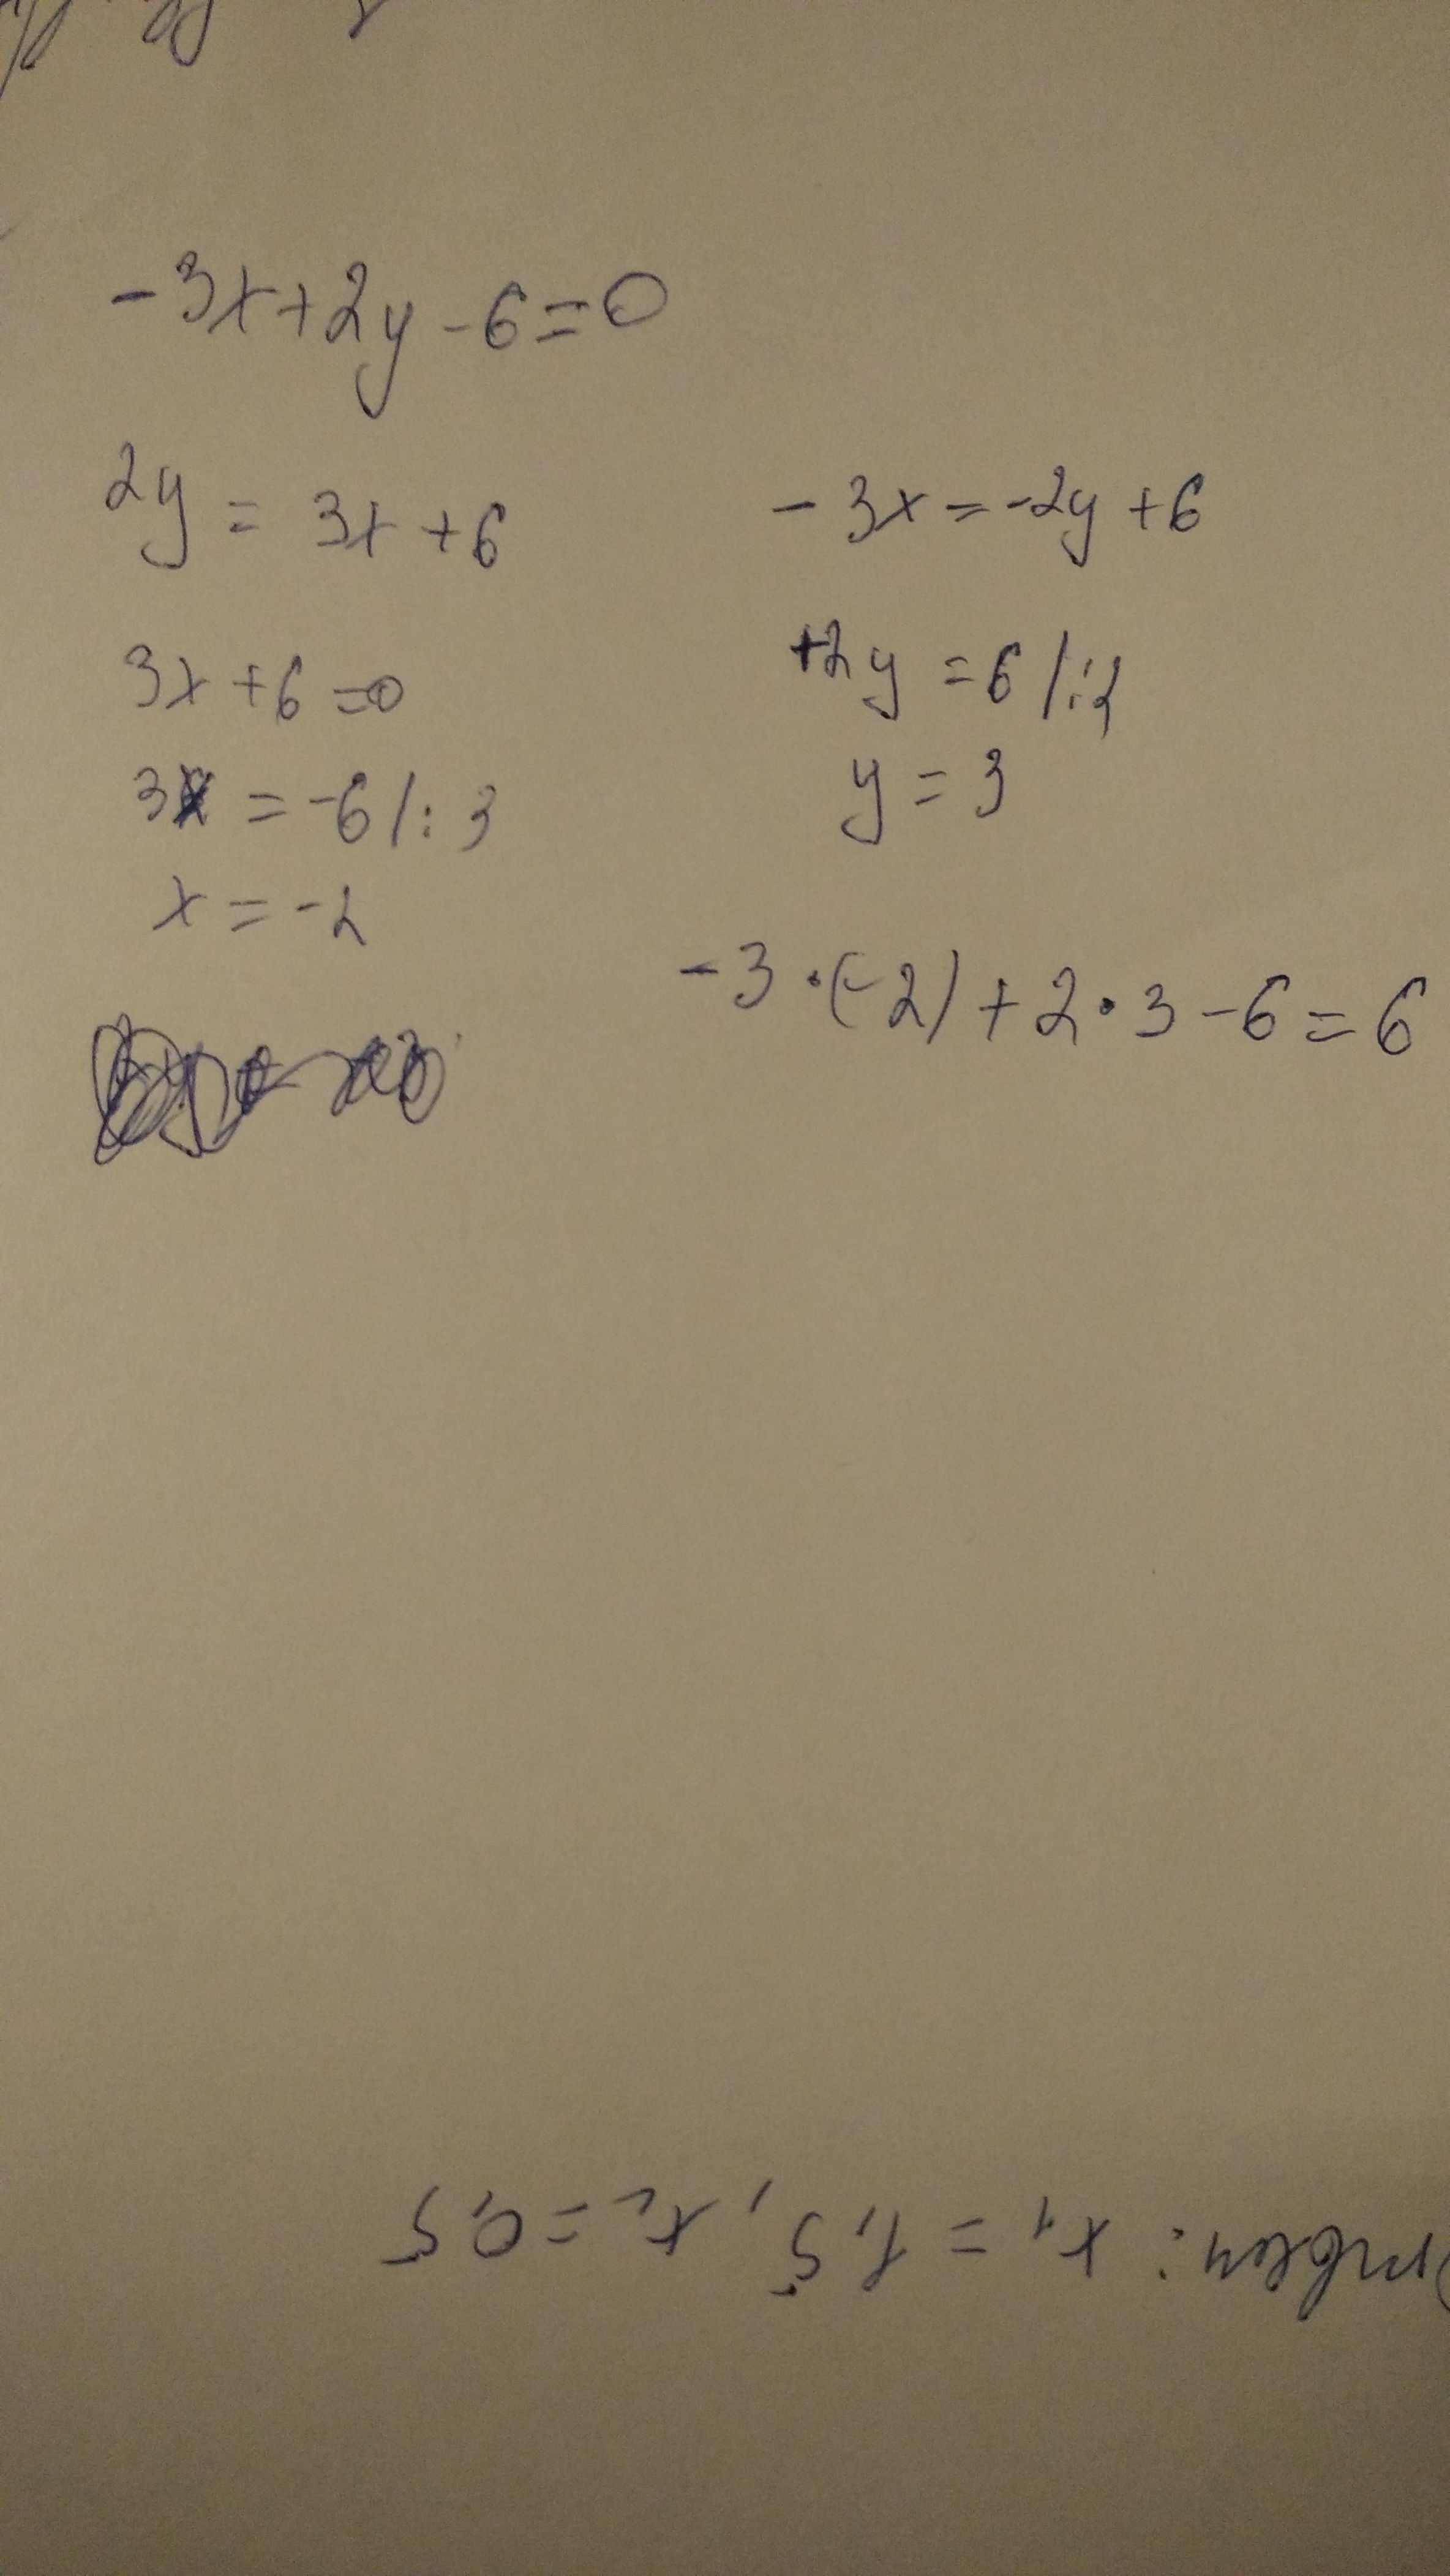 -3x+2y-6=0
2y = 3x+6
3x+6=0
3x = -6/:3
x = -2
-3x=-2y+6
+2y = 6/:2
y = 3
-3·(-2)+2·3-6=6
x₁ = 1,5, x₂ = 0,5